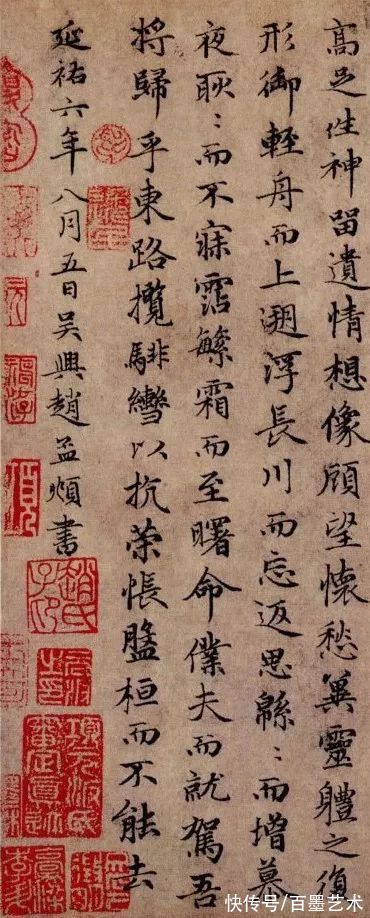 高足往神留遺情想像顧望懷愁冀靈體之復
形御輕舟而上遡浮長川而忘返思緜〻而增慕
夜耿〻而不寐霑繁霜而至曙命僕夫而就駕吾
將歸乎東路攬騑轡以抗策悵盤桓而不能去
延祐六年八月五日吳興趙孟頫書
趙氏子昂
項元汴氏審定真跡
快传号/百墨艺术